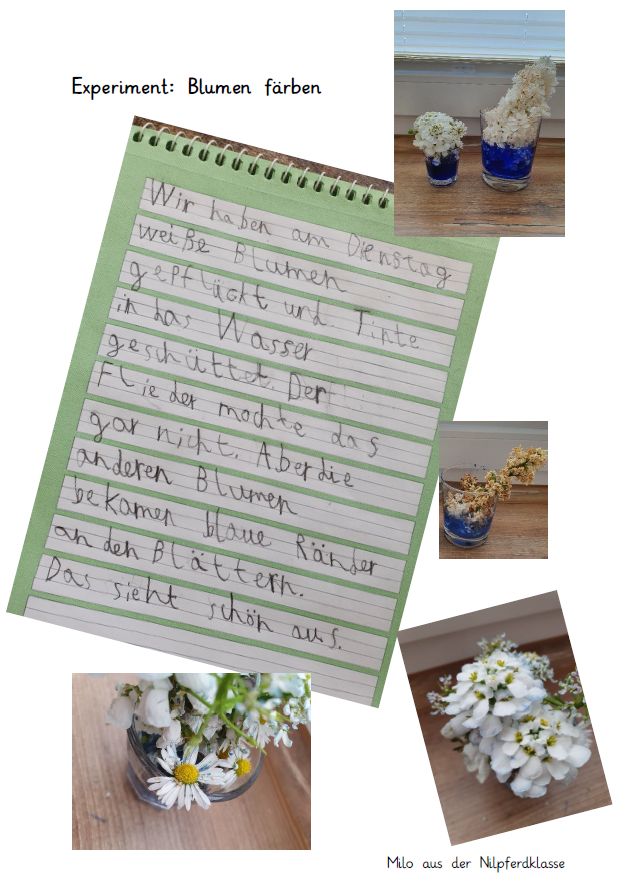 Experiment: Blumen färben
Wir haben am Dienstag
weiße Blumen
gepflückt und Tinte
in das Wasser
geschüttet. Der
Flieder mochte das
gar nicht. Aber die
anderen Blumen
bekamen blaue Ränder
an den Blättern.
Das sieht schön aus.
Milo aus der Nilpferdklasse